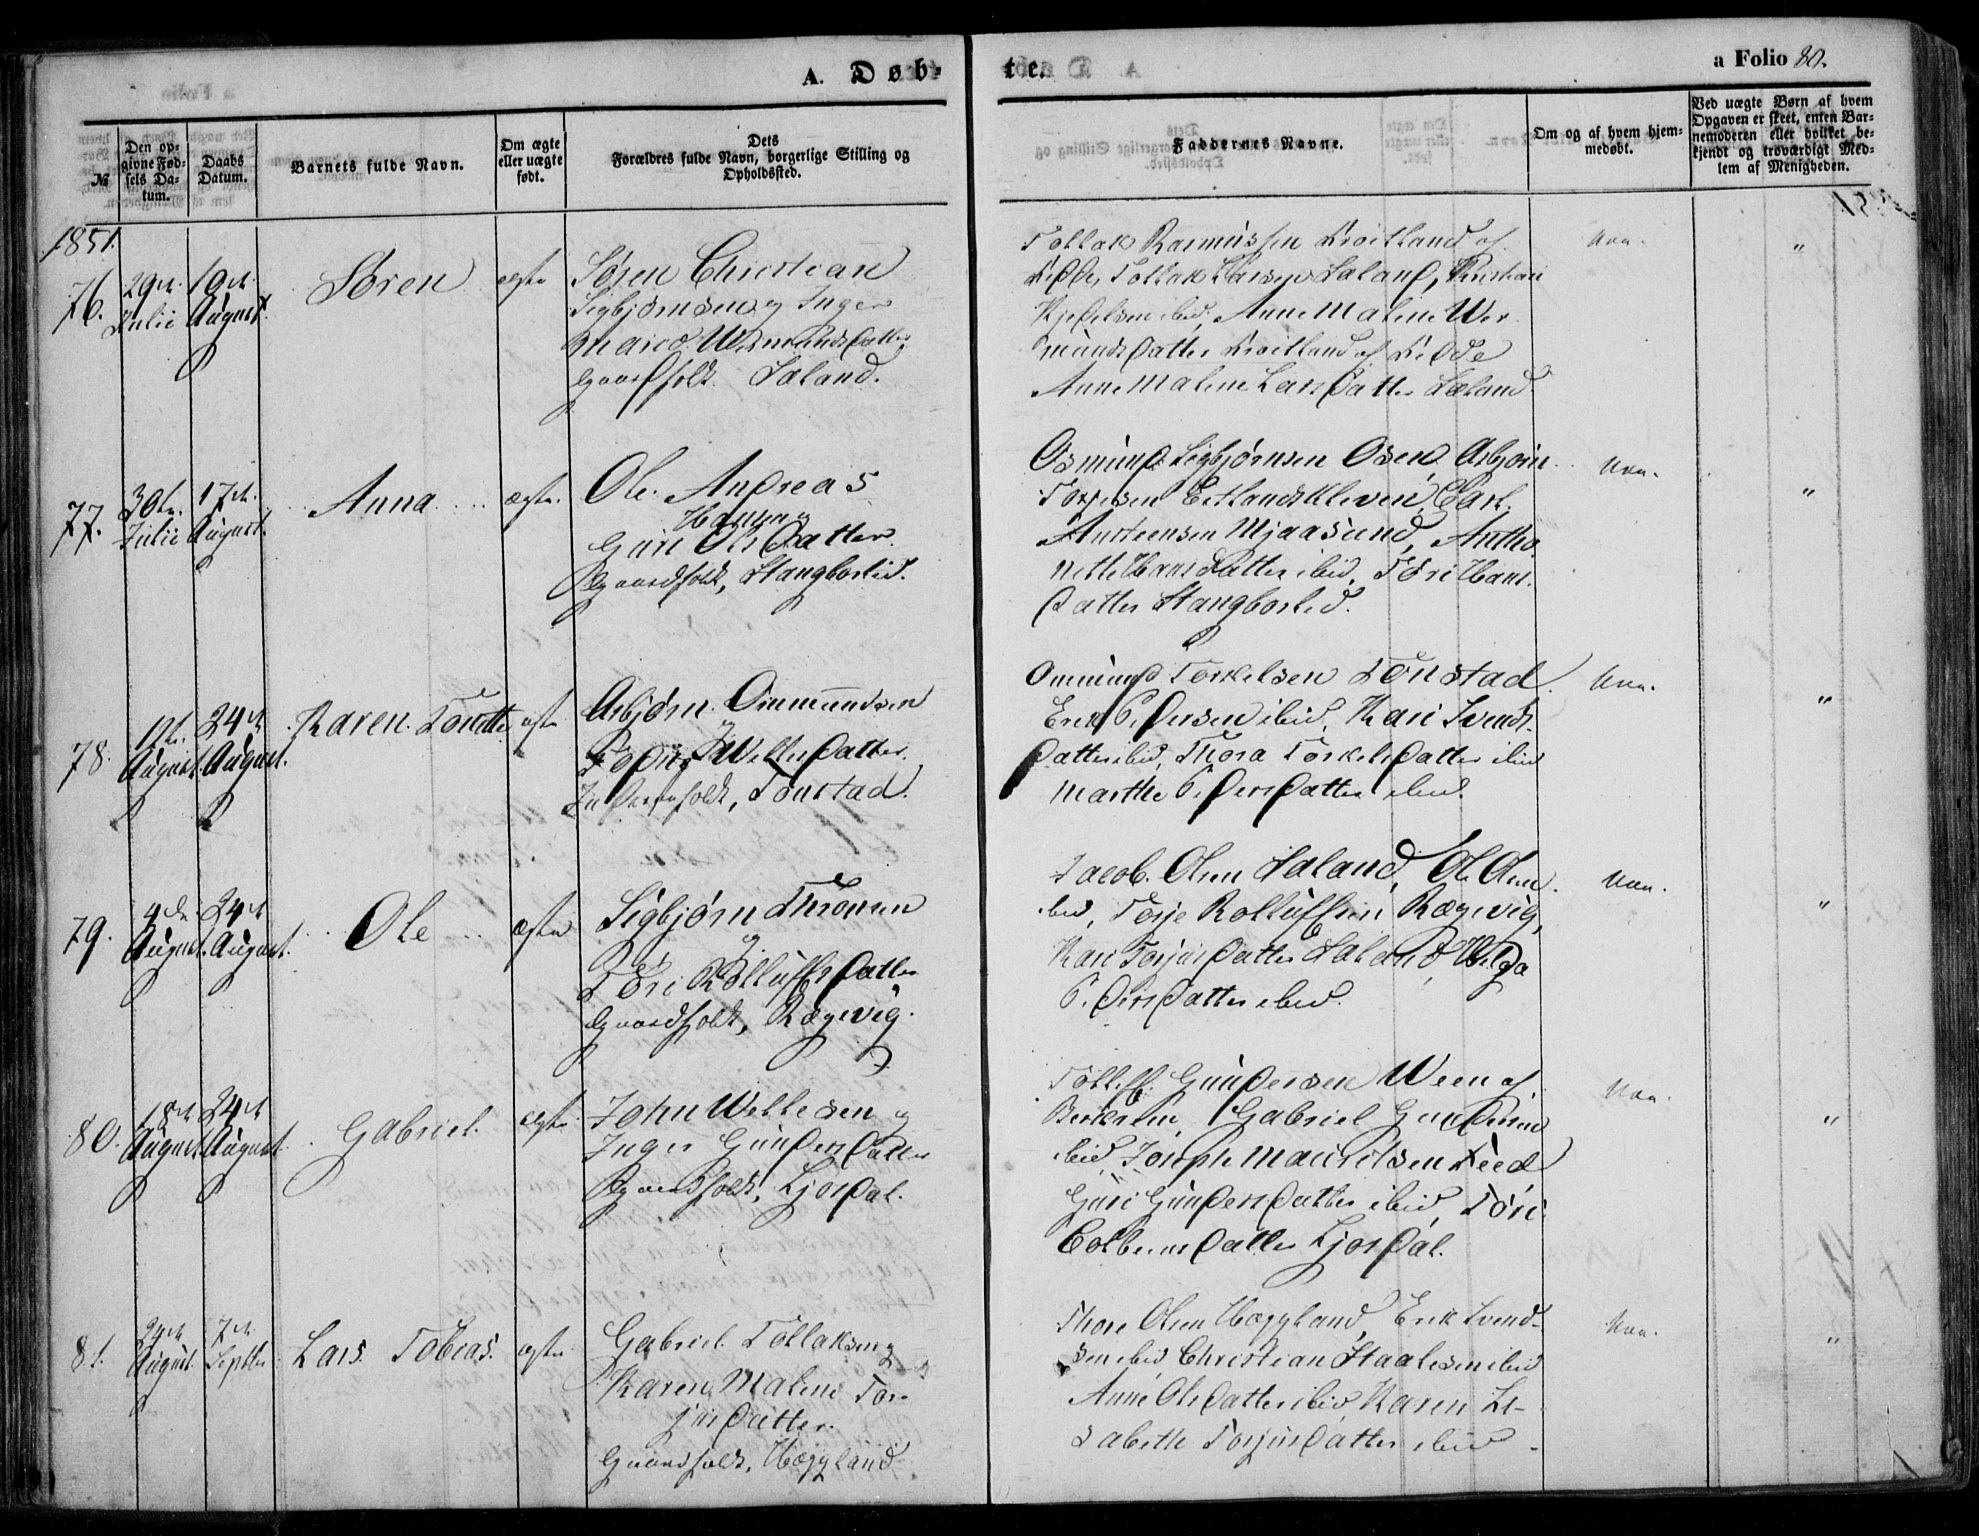 A. Døb-
te.
a Folio 80.
№
Den op-
givne Fød-
sels Da-
tum.
Daabs
Datum.
Barnets fulde Navn.
Om ægte
eller uægte
født.
Dets
Forældres fulde Navn, borgerlige Stilling og
Opholdssted.
Faddernes Navne.
Om og af hvem hjem-
medøbt.
Ved uægte Børn af hvem
Opgaven er skeet, enten Bar-
nemoderen eller hvilket be-
kjendt og troværdigt Med-
lem af Menigheden.
1851.
76.
29de
Julii
10de
August
Søren
ægte
Søren Christian
Sigbjørnsen og Inger
Marie Wermunds Datter
Gaardfolk Saland.
Tollak Rasmussen Kroitland af
Tollak Larsen Saland,
ibid, Anne Malene Wer
munds Datter Kroitland af
Anne Malene Lars Datter Saland
77.
30te
Julii
17de
August.
Anna
ægte.
Ole Andreas
Hansen og
Guri Ols Datter
Gaardfolk, Stangborlid.
Osmund Sigbjørnsen Osen, Asbjørn
Torjesen Eitlandskleven, Carl
Austensen Mjaasund, Antho
nette Hans Datter ibid, Tøri Hans
Datter Stangborlid.
78.
1te
August.
24de
August.
Karen Tonette
ægte
Asbjørn Ommundsen
og
Welles Datter
Inderstfolk, Tonstad.
Ommund Torkelsen Tonstad
Erik Pedersen ibid, Kari Svends
Datter ibid, Thora Torkels Datter ibid
Marthe Peders Datter ibid.
79.
4de
August.
24de
August.
Ole
ægte
Sigbjørn Thronsen
og
Tøri Rolluffs Datter
Gaardfolk, Rægevig.
Jacob Olsen Saland, Ole Olsen
ibid, Torje Rolluffsen Rægevig,
Kari Torjus Datter Saland, Helga
Peders Datter ibid.
80.
18de
August
24de
August
Gabriel.
ægte
John Wellesen og
Inger Gunders Datter
Gaardfolk, Ljosdal.
Tolleff GundersenWeen af
Gabriel Gundersen
ibid, Joseph Mauritsen
Guri Gunders Datter ibid, Tøri
Colbens Datter Ljosdal.
81.
24de
August
7de
Septbr
Lars Tobias.
ægte
Gabriel Tollaksen og
Karen Malene Tor-
jus Datter.
Gaardfolk, Hægland
Thore Olsen Hægland, Erik Svend-
sen ibid Christian Staalesen ibid
Anne Ols Datter ibid, Karen Li-
sabethe Torjus Datter ibid